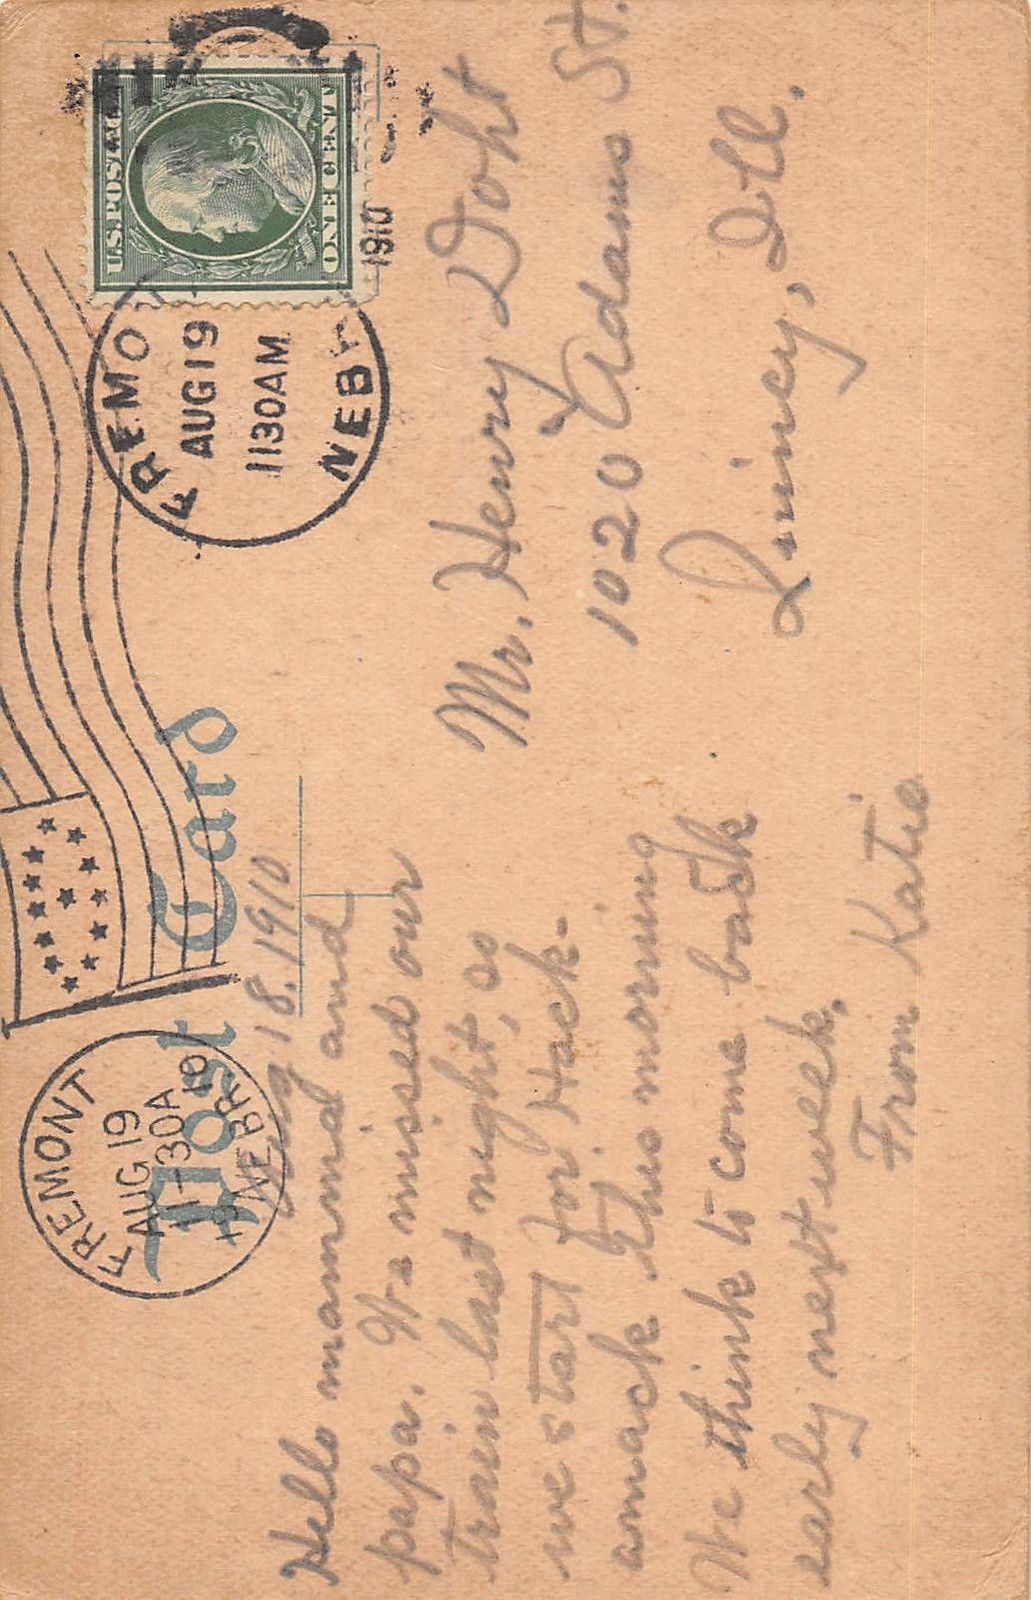 Post Card
FREMONT
AUG 19
11-30A
1910
NEBR.
FREMO
AUG 19
1130AM
NEBR
1910
U.S. POSTAGE
ONE CENT
Aug 18. 1910
Hello mamma and
papa. We missed our
train last night, so
we start for Hack-
amack this morning
We think to come back
early next week.
From Katie
Mr. Henry Doht
1020 Adams St.
Quincy, Ill.